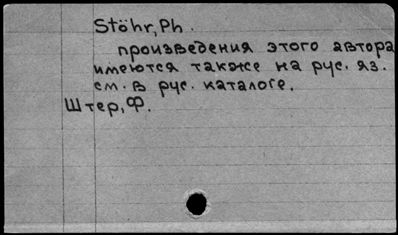 Stöhr, Ph.
произведения этого автора
имеются также на рус. яз.
см. в рус. каталоге.
Штер, Ф.